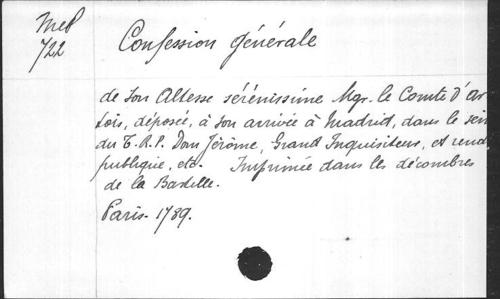 Mel
722
Confession générale
de son Altesse sérénissime Mgr. le Comte d'Ar
tois, déposée, à son arrivée à Madrid, dans le sein
du T. R. P. Dom Jérôme, Grand Inquisiteur, et rend
publique, etc. Imprimée dans les décombres
de la Bastille.
Paris. 1789.